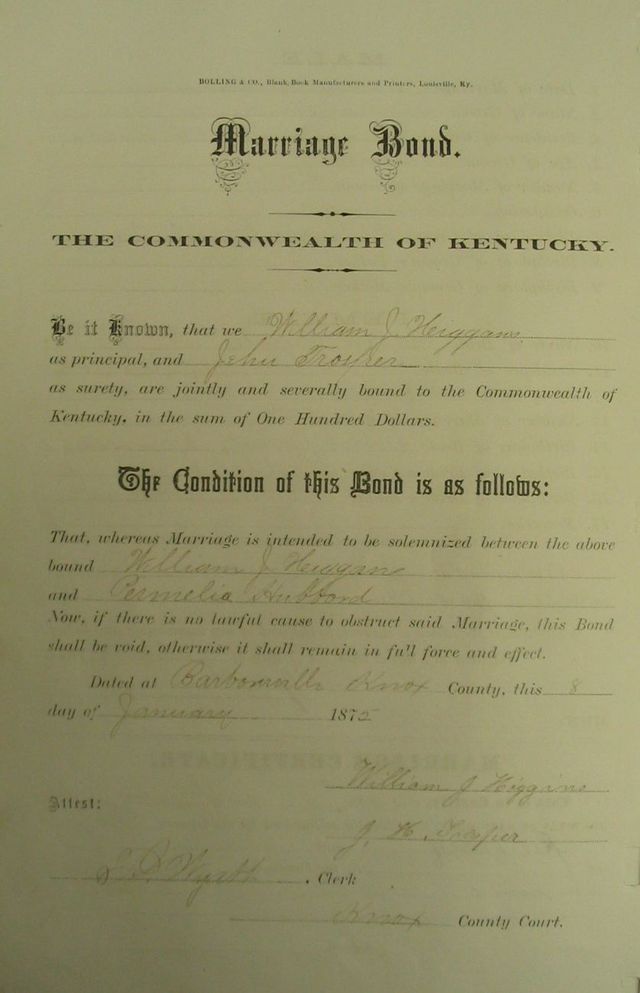 BOLLING & CO., Blank Book Manufacturers and Printers, Louisville, Ky.
Marriage Bond.
THE COMMONWEALTH OF KENTUCKY.
Be it Known, that we William J Higgans
as principal, and John Trosper
as surety, are jointly and severally bound to the Commonwealth of
Kentucky, in the sum of One Hundred Dollars.
The Condition of this Bond is as follows:
That, whereas Marriage is intended to be solemnized between the above
bound William J Higgans
and Permelia Hubbord
Now, if there is no lawful cause to obstruct said Marriage, this Bond
shall be void, otherwise it shall remain in full force and effect.
Dated at Barbourville Knox County, this 8
day of January 1875
William J Higgins
Attest:
J. H. Trosper
Wyatt, Clerk
Knox County Court.